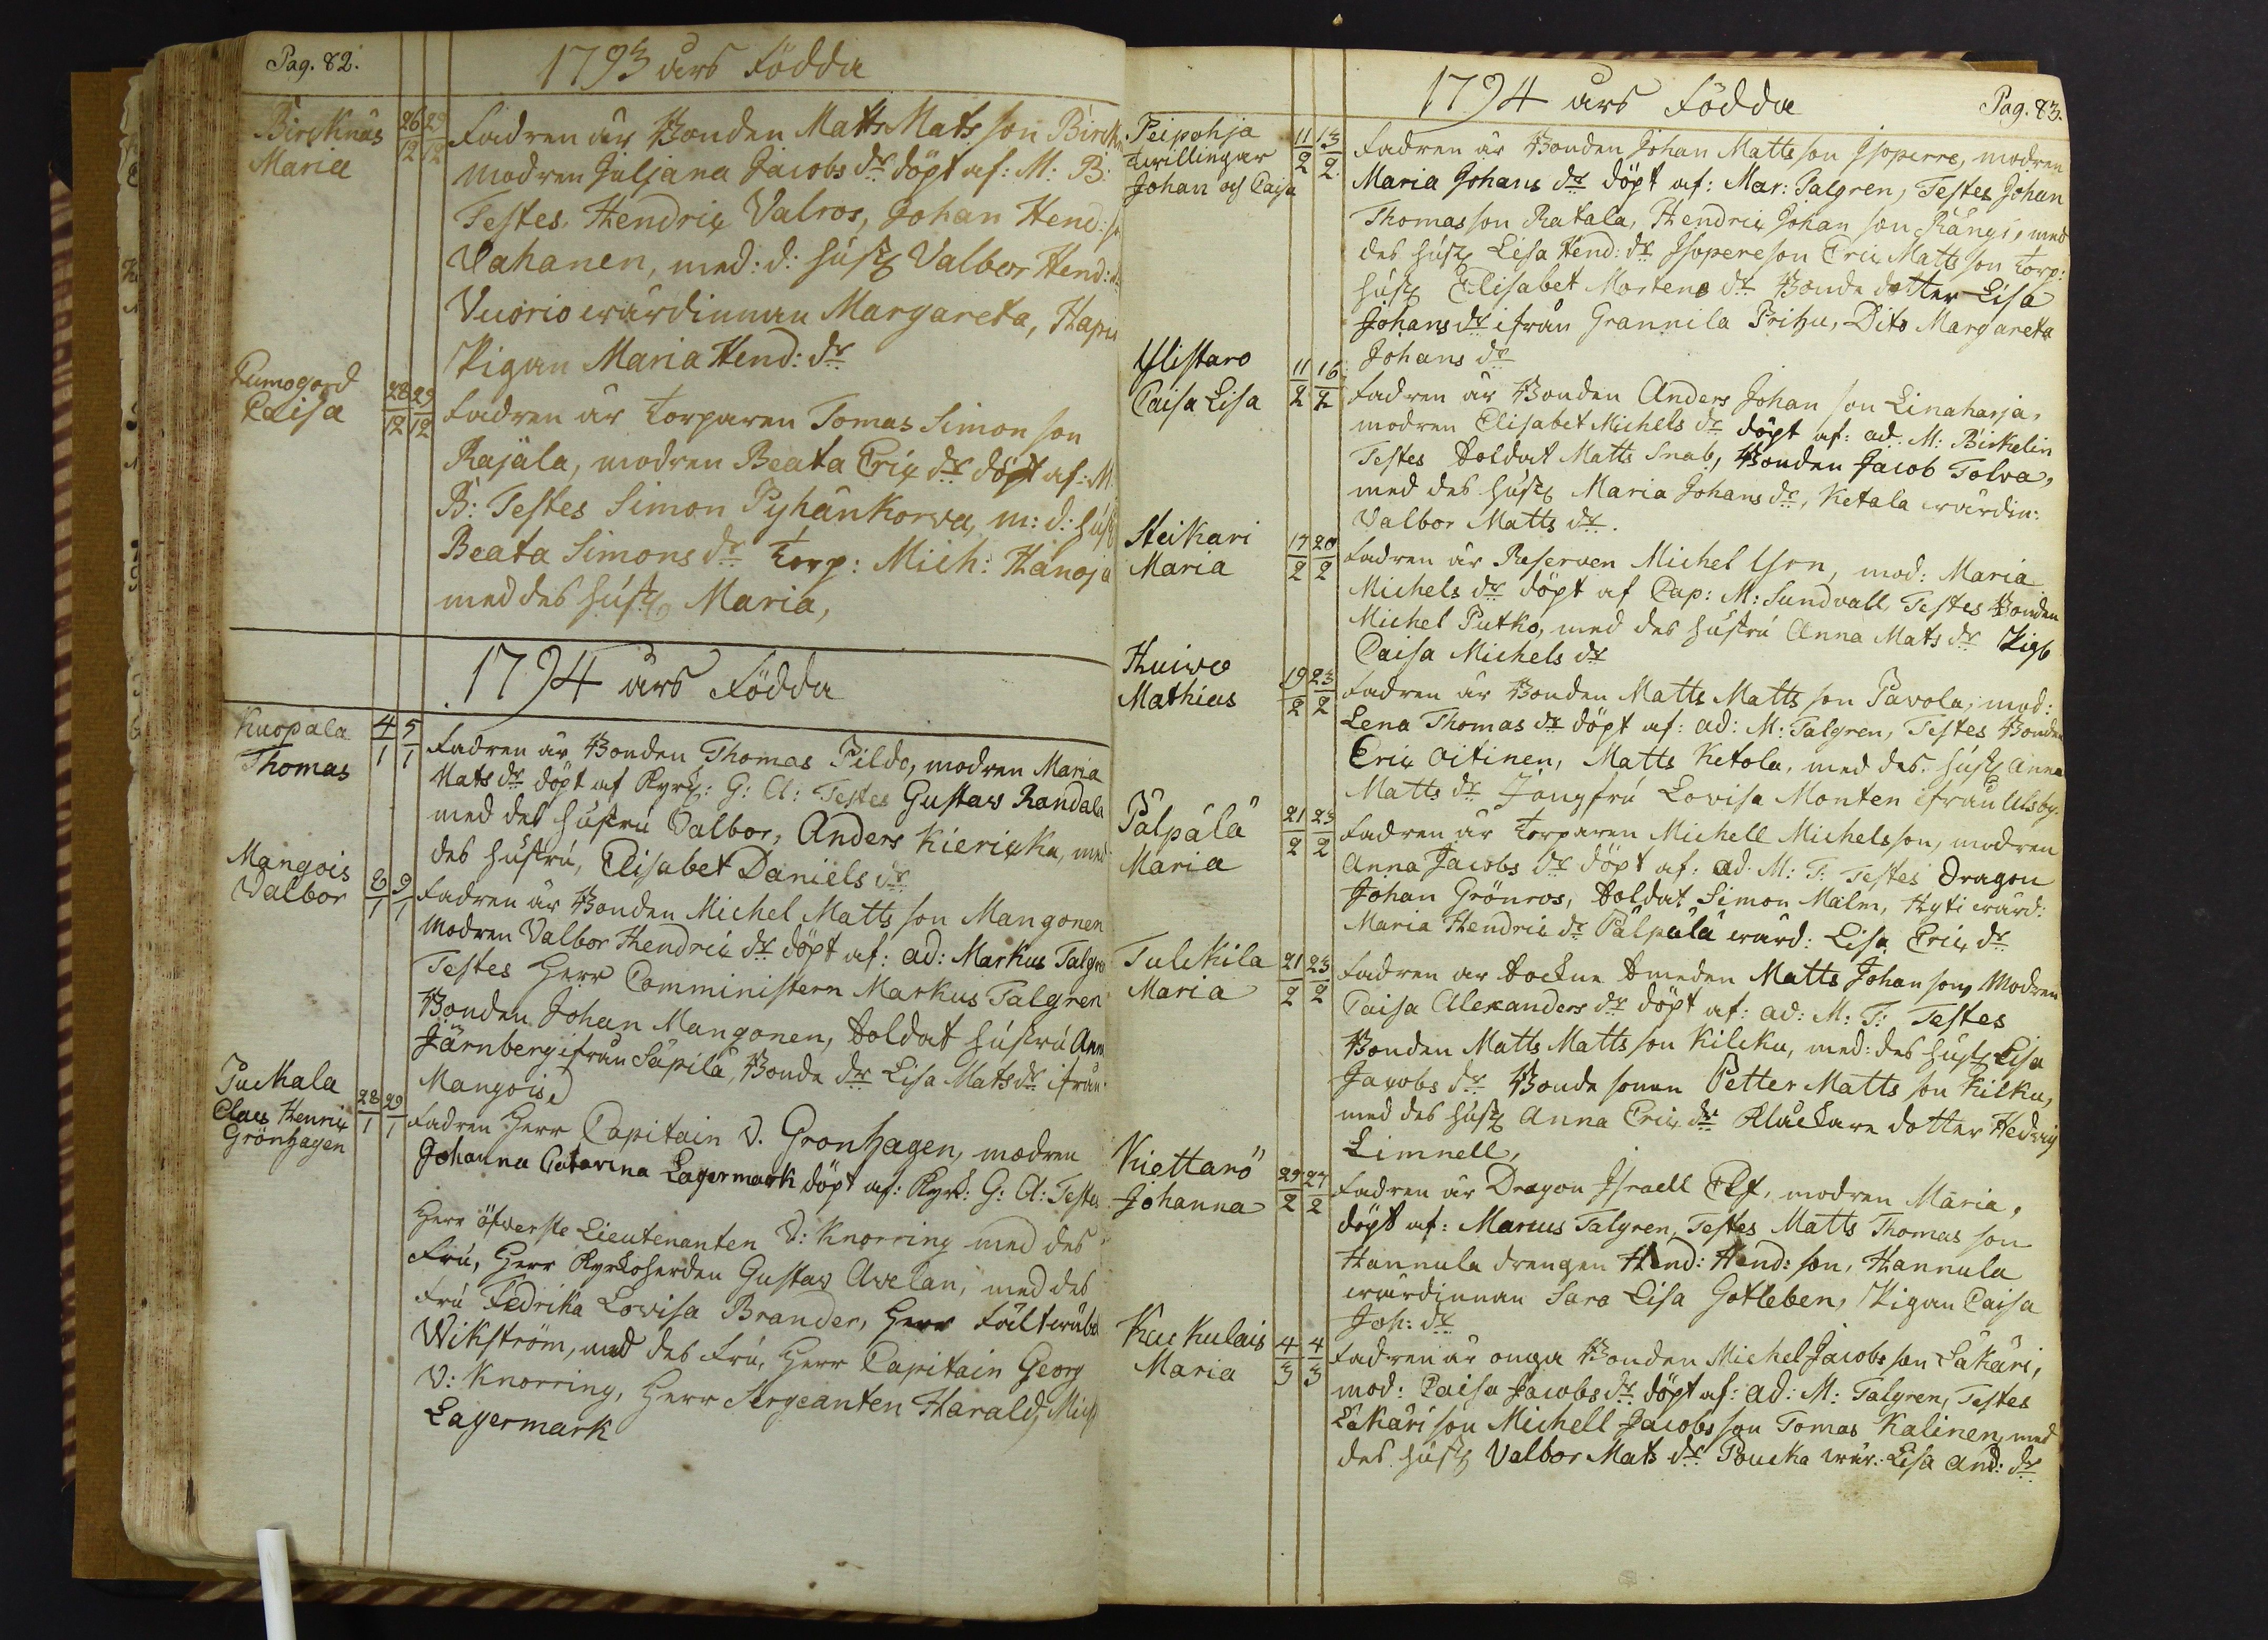 Pag. 82.
1793 års Födda
Bircknäs
Maria
26/12 29/12
Fadren är Bonden Matts Mats son Birck
modren Juljana Jacobs dr döpt af: M: B:
Testes, Hendric Valros, Johan Hend:
Vahanen, med: d: hust Valbor Hend:
Vuorio wärdinnan Margareta,
Pigan Maria Hend: dr
Kumogord
Caisa
28/12 29/12
Fadren är Torparen Tomas Simon son
Rajala, modren Beata Eric dr döpt af: M.
B: Testes Simon Pyhänkorva, m: d: hust
Beata Simons dr Torp: Mich: Hanoja
med des hust Maria,
1794 års Födda
Kuopala
Thomas
4/1 5/1
Fadren är Bonden Thomas Pildo, modren Maria
Mats dr döpt af Kyrk: G: A: Testes Gustaw Randala
med des hustru Valbor, Anders Kiericka, med
des hustru, Elisabet Daniels dr
Mangois
Valbor
8/1 9/1
Fadren är Bonden Michel Matts son Mangonen
modren Valbor Hendric dr döpt af: ad: Markus Talgre
Testes Herr Comministern Markus Talgren
Bonden Johan Mangonen, Soldat hustru Ann
Järnberg ifrån Säpilä, Bonde dr Lisa Mats dr ifrån
Mangois
Puckala
Claes Henric
Grönhagen
28/1 29/1
Fadren Herr Capitain V. Gronhagen, modren
Johanna Catarina Lagermark döpt af: Kyrk: G: A: Testes
Herr öfwerste Lieutenanten V: Knorring med des
Fru, Herr Kyrkoherden Gustaw Avelan, med des
Fru Fedrika Lovisa Brander, Herr Fältwäb
Wikström, med des Fru, Herr Capitain Georg
V: Knorring, Herr Sergeanten Harald, Mich
Lagermark
1794 års Födda
Pag. 83.
Peipohja
twillingar
Johan och Caisa
11/2 13/2
Fadren är Bonden Johan Matts son Isoperre, modren
Maria Johans dr döpt af: Mar: Talgren, Testes Johan
Thomas son Ratala, Hendric Johan son Rängi, med
des hust Lisa Hend: dr Isopere son Eric Matts son Torp:
hust Elisabet Mortens dr Bonde dotter Lisa
Johans dr ifrån Grannila Prihu, Dito Margareta
Johans dr
Ylistaro
Caisa Lisa
11/2 16/2
Fadren är Bonden Anders Johan son Linaharja,
modren Elisabet Michels dr döpt af: ad: M: Birkelin
Testes Soldat Matts Snab, Bonden Jacob Tolva,
med des hust Maria Johans dr, Ketala wärdin:
Valbor Matts dr.
Steikari
Maria
17/2 20/2
Fadren är Reserven Michel Urn, mod: Maria
Michels dr döpt af Cap: M: Sundvall, Testes Bonden
Michel Putko, med des hustru Anna Mats dr Pig
Caisa Michels dr
Huivo
Mathias
19/2 23/2
Fadren är Bonden Matts Matts son Pavola, mod:
Lena Thomas dr döpt af: ad: M: Talgren, Testes Bonden
Eric Oitinen, Matts Ketola, med des hust Anna
Matts dr Jungfru Lovisa Monten ifrån Ulsby
Pälpälä
Maria
21/2 23/2
Fadren är Torparen Michell Michels son, modren
Anna Jacobs dr döpt af: ad: M: T: Testes Dragon
Johan Grönros, Soldat Simon Malm, Hyti wärd:
Maria Hendric dr Pälpälä wärd: Lisa Eric dr
Tulckila
Maria
21/2 23/2
Fadren är Sockne Smeden Matts Johan son, Modren
Caisa Alexanders dr döpt af: ad: M: T: Testes
Bonden Matts Matts son Kilcku, med: des hust Lisa
Jacobs dr Bonde sonen Petter Matts son Kilku,
med des hust Anna Eric dr Kluckare dotter Hedvig
Limnell,
Kiettarö
Johanna
25/2 27/2
Fadren är Dragon Israell Elf, modren Maria,
döpt af: Marcus Talgren, Testes Matts Thomas son
Hannula drengen Hend: Hend: son, Hannula
wärdinnan Sara Lisa Gotleben, Pigan Caisa
Joh: dr
Kuckulais
Maria
4/3 4/3
Fadren är unga Bonden Michel Jacobs son Säkäri,
mod: Caisa Jacobs dr döpt af: ad: M: Talgren, Testes
Säkäri son Michell Jacobs son Tomas Kalinen, med
des hust Valbor Mats dr Poucka wär: Lisa And: dr